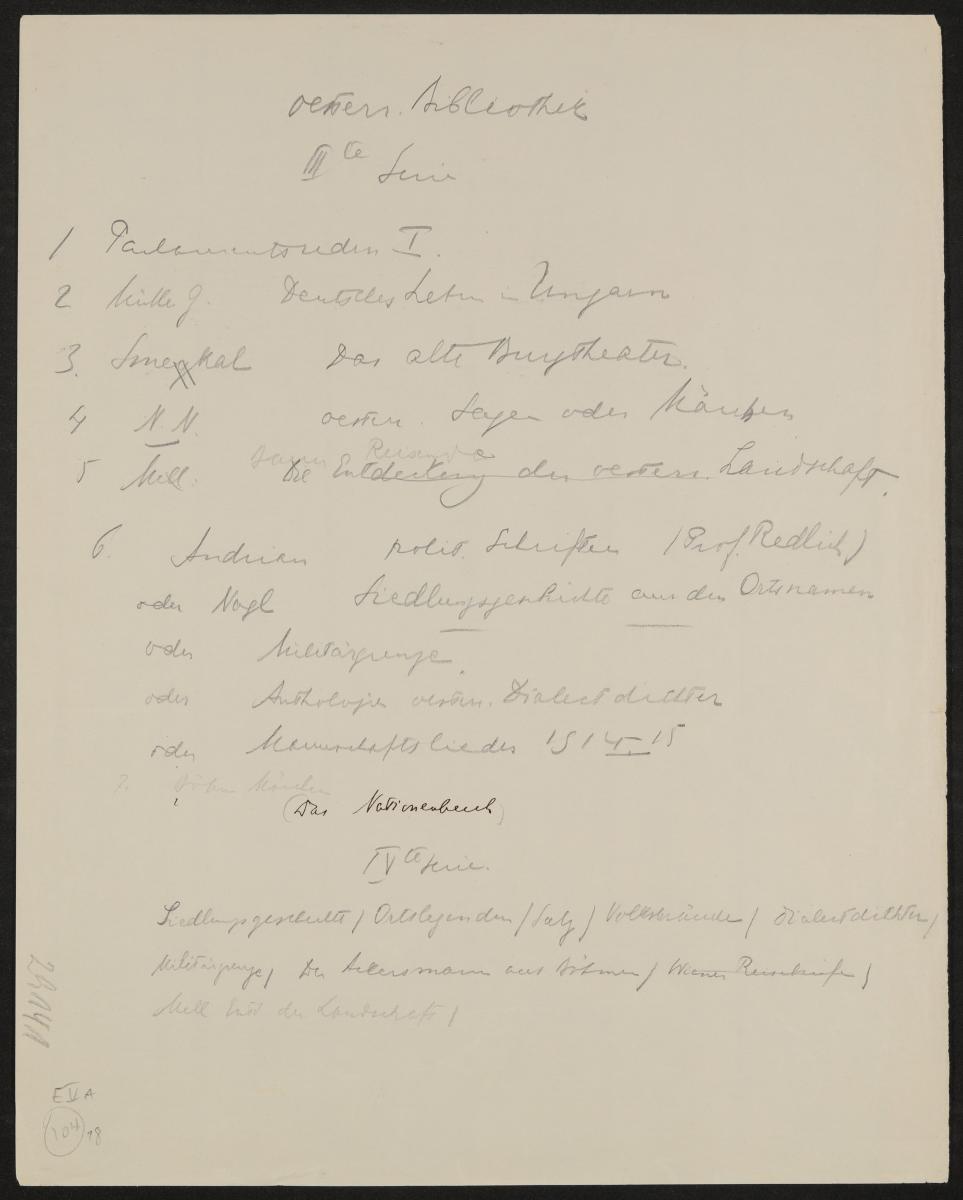 oesterr. Bibliothek
III te Serie
1 Parlamentsreden I.
2 Müller G. Deutsches Leben in Ungarn
3. Smekal Das alte Burgtheater.
4 N. N. oesterr. Sagen oder Märchen
Reisende
5 Mell. Die Entdeckung der oesterr. Landschaft.
6. Andrian polit. Schriften (Prof. Redlich)
oder Nagl Siedlungsgeschichte aus den Ortsnamen
oder Militärgrenze.
oder Anthologie oesterr. Dialectdichter
oder Mannschaftslieder 1914-15
7. böhm Märchen
(Das Nationenbuch)
IV te Serie.
Siedlungsgeschichte / Ortslegenden / Salz / Volksbräuche / Dialectdichter /
Militärgrenze / Der Ackersmann aus Böhmen / Wiener Reisebriefe /
Mell Entd der Landschaft /
E V A
104 18